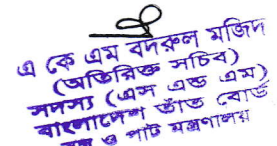 এ কে এম বদরুল মজিদ
(অতিরিক্ত সচিব)
সদস্য (এস এন্ড এম)
বাংলাদেশ তাঁত বোর্ড
ও পাট মন্ত্রণালয়